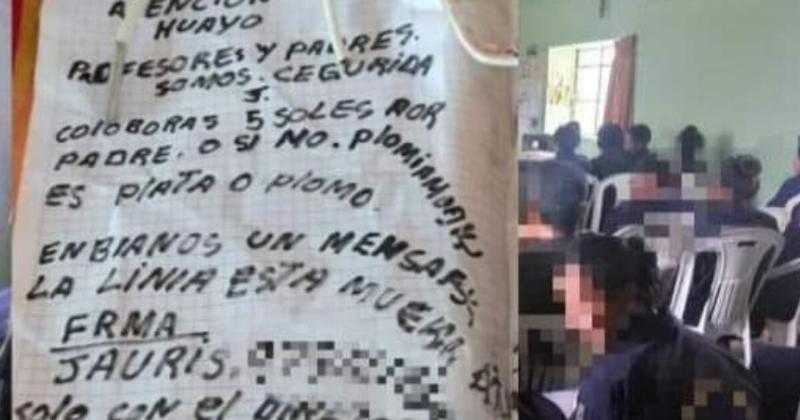 ATENCION
HUAYO
PROFESORES Y PADRES.
SOMOS. CEGURIDA
J.
COLOBORAS 5 SOLES POR
PADRE. O SI NO.
ES PLATA O PLOMO.
ENBIANOS UN MENSAFE
LA LINIA ESTA MUERA
FRMA
JAURIS. 97
SOLO CON EL